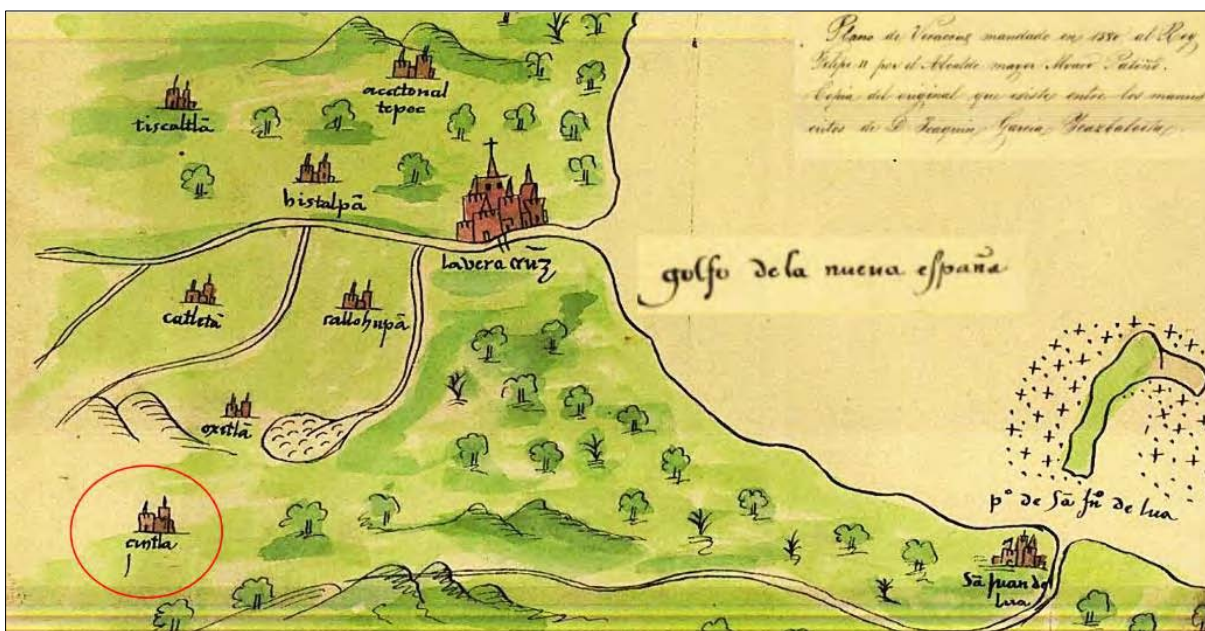 Plano de Veracruz mandado en 1580 al Rey
Felipe II por el Alcalde mayor Alvaro Patiño.
Copia del original que existe entre los manus
critos de D. Joaquin Garcia Icazbalceta.
acatonal
tepec
tiscaltlā
bistalpā
la vera crūz
golfo de la nueua españa
catletā
callohupā
oxitlā
cintla
pº de Sā Juº de lua
Sā Juan de
lua